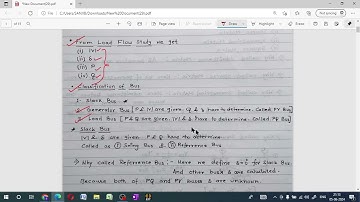 File C:/Users/SAMIM/Downloads/New%20Document(29).pdf
of 9
Draw
From Load Flow Study we get
(i) |V|
(ii) δ
(iii) P
(iv) Q
Classification of Bus
1. Slack Bus
2. Generator Bus [P & |V| are given, Q & δ have to determine. Called PV Bus]
3. Load Bus [P & Q are given, |V| & δ have to determine. Called PQ Bus]
Slack Bus
|V| & δ are given P & Q have to determine
Called as ① Swing Bus & ② Reference Bus
→ Why called Reference Bus :- Here we define δ=0° for Slack Bus
And other buses δ are calculated.
Because both of PQ and PV buses δ are unknown.
05-06-2024